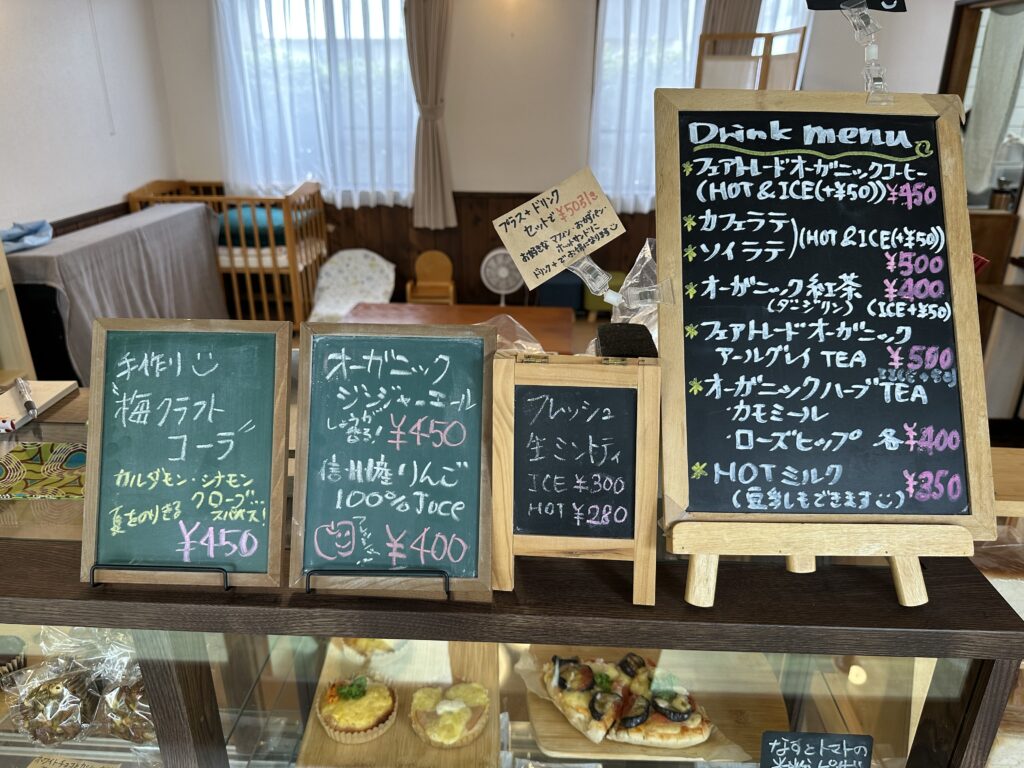 手作り
梅クラフト
コーラ
カルダモン・シナモン
クローブ...
夏をのりきるスパイス!
¥450
オーガニック
ジンジャーエール
しょうが
香る! ¥450
信州産りんご
100% Juce
¥400
プラス+ドリンク
セットで¥50引き
お好きなマフィン・おかずパン・
ホットサンドに
ドリンク+でお得になります
フレッシュ
生ミントティ
ICE ¥300
HOT ¥280
Drink menu
フェアトレードオーガニックコーヒー
(HOT & ICE(+¥50)) ¥450
カフェラテ
ソイラテ
(HOT & ICE(+¥50))
¥500
オーガニック紅茶 ¥400
(ダージリン) (ICE+¥50)
フェアトレードオーガニック
アールグレイ TEA ¥500
オーガニックハーブTEA
・カモミール
・ローズヒップ 各¥400
HOTミルク ¥350
(豆乳もできます)
なすとトマトの